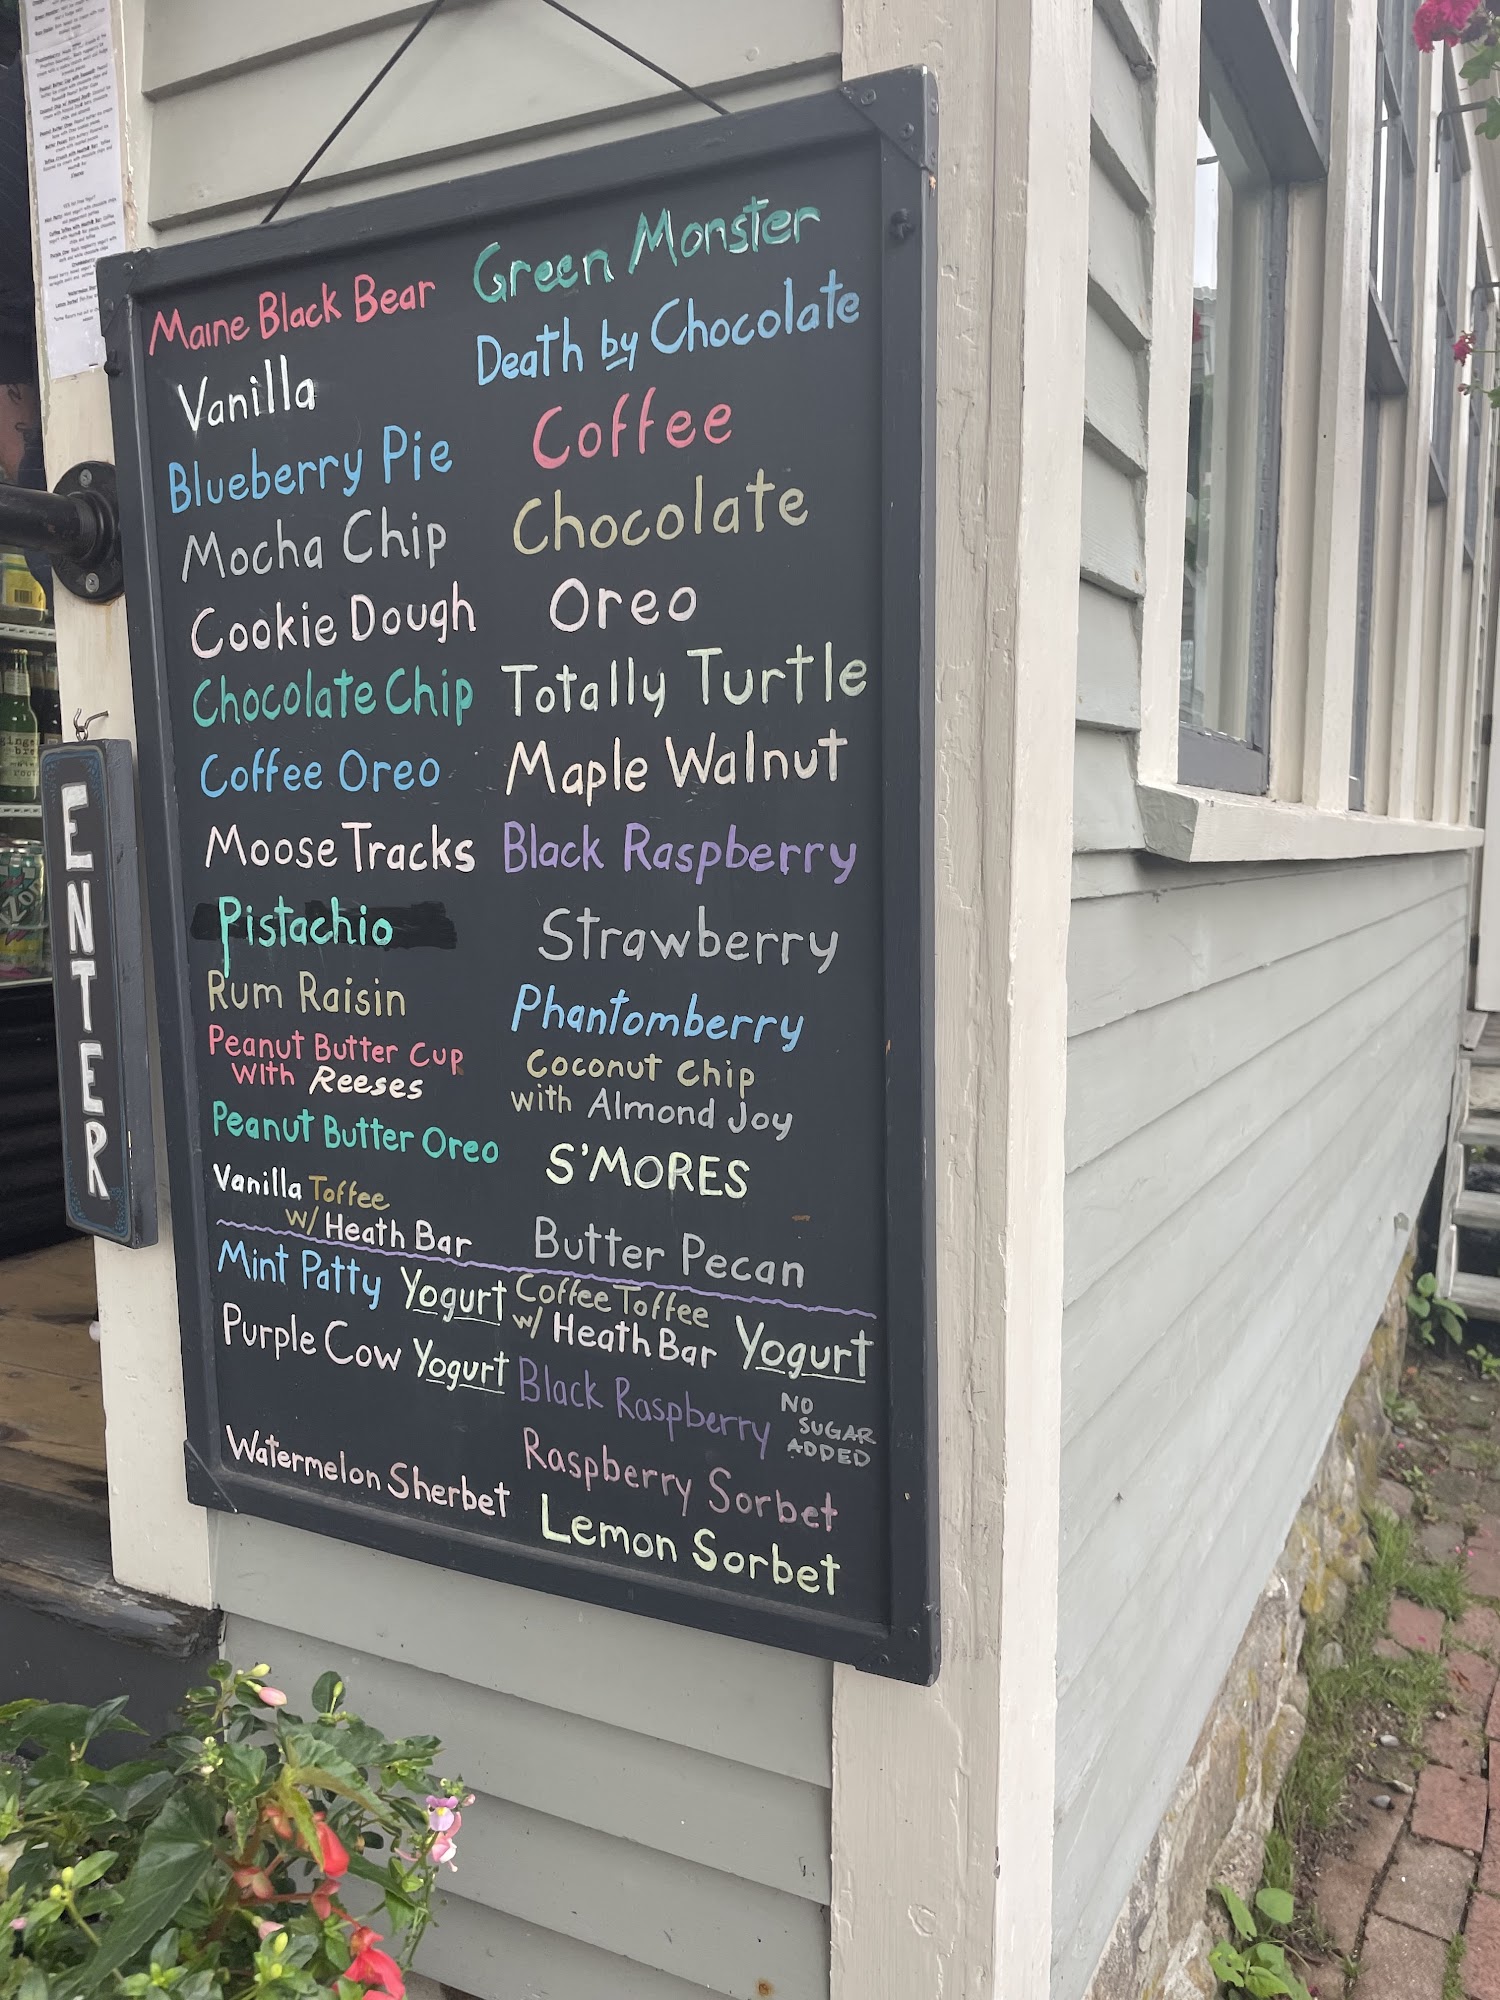 Maine Black Bear
Vanilla
Blueberry Pie
Mocha Chip
Cookie Dough
Chocolate Chip
Coffee Oreo
Moose Tracks
Pistachio
Rum Raisin
Peanut Butter Cup
with Reeses
Peanut Butter Oreo
Vanilla Toffee
w/ Heath Bar
Green Monster
Death by Chocolate
Coffee
Chocolate
Oreo
Totally Turtle
Maple Walnut
Black Raspberry
Strawberry
Phantomberry
Coconut Chip
with Almond Joy
S'MORES
Butter Pecan
Mint Patty Yogurt
Purple Cow Yogurt
Watermelon Sherbet
Coffee Toffee
w/ Heath Bar Yogurt
Black Raspberry NO
SUGAR
ADDED
Raspberry Sorbet
Lemon Sorbet
ENTER